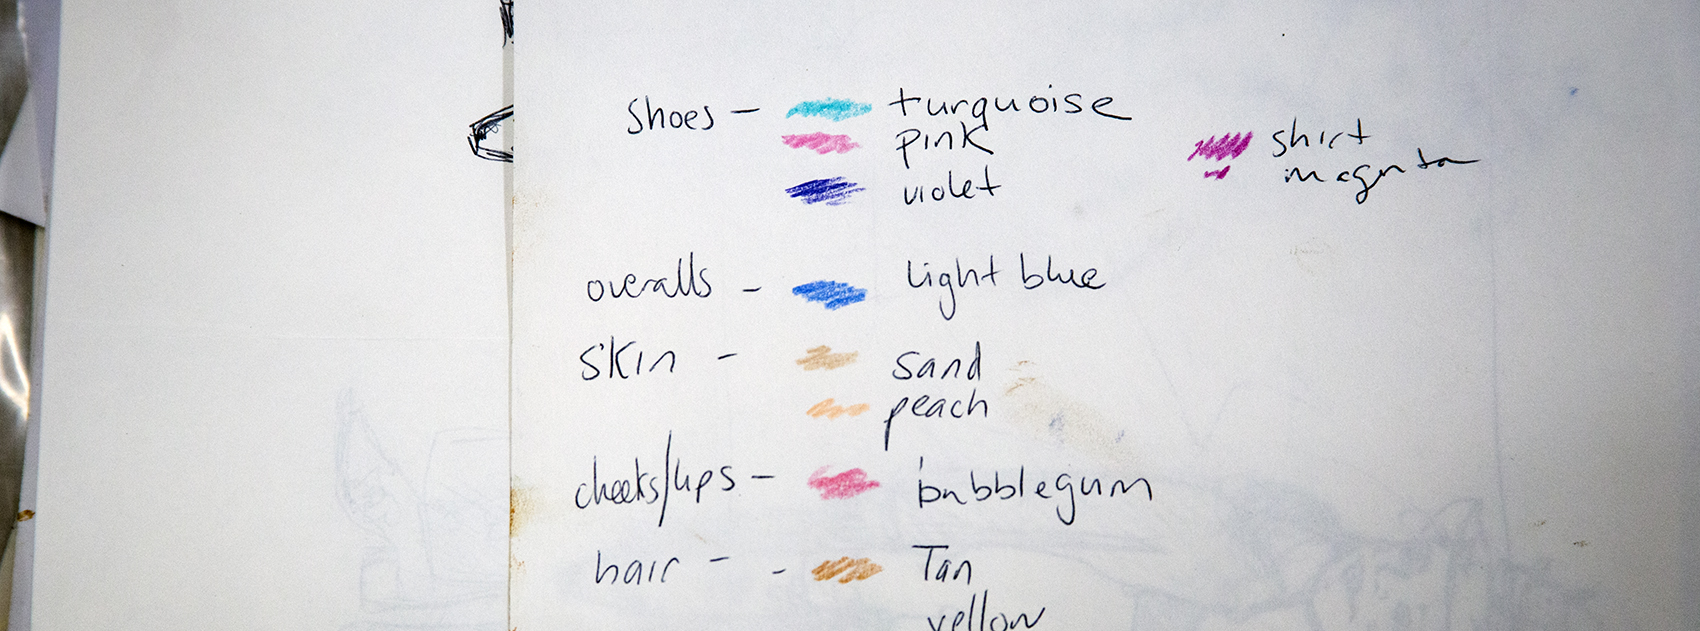 Shoes - turquoise
pink
violet
shirt
magenta
overalls - light blue
skin - sand
peach
cheeks/lips - bubblegum
hair - - Tan
yellow